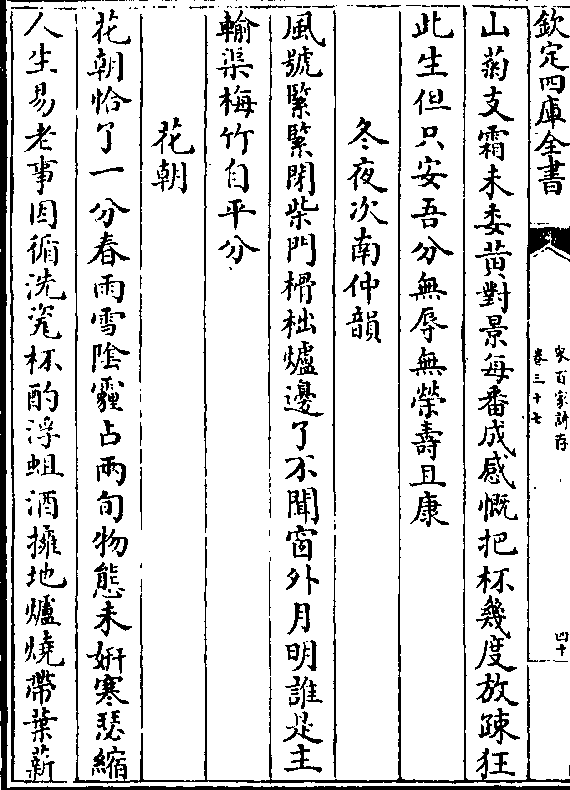 欽定四庫全書
宋百家詩存
卷三十七
四十
山菊支霜未委黄對景每番成感慨把杯幾度放疎狂
此生但只安吾分無辱無榮壽且康
冬夜次南仲韻
風號緊緊閉柴門榾柮爐邊了不聞窗外月明誰是主
輸渠梅竹自平分
花朝
花朝恰了一分春雨雪陰霾占兩旬物態未妍寒瑟縮
人生易老事因循洗瓷杯酌浮蛆酒擁地爐燒帶葉薪